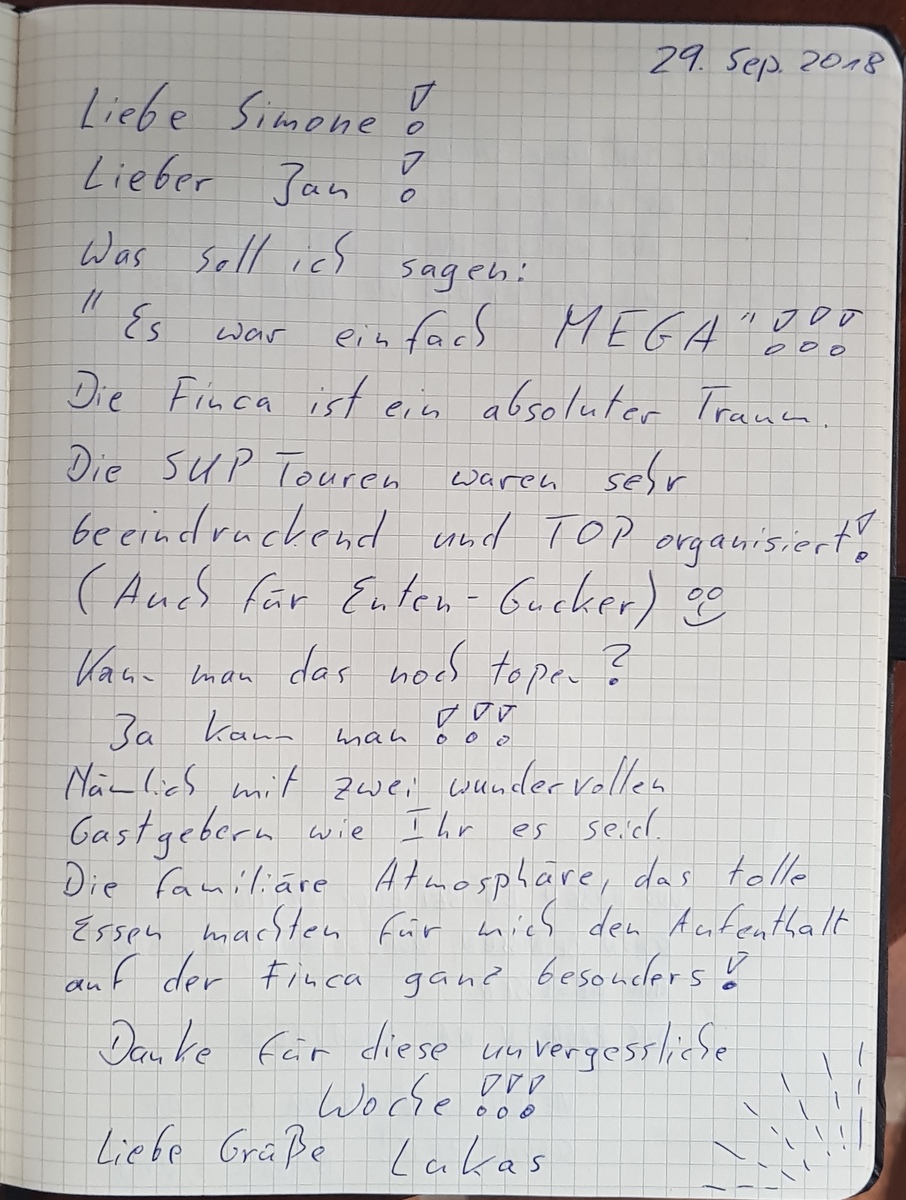 29. Sep. 2018
Liebe Simone!
Lieber Jan!
Was soll ich sagen:
"Es war einfach MEGA"!!!
Die Finca ist ein absoluter Traum.
Die SUP Touren waren sehr
beeindruckend und TOP organisiert!
(Auch für Enten-Gucker) ☺
Kann man das noch topen?
Ja kann man!!!
Nämlich mit zwei wundervollen
Gastgebern wie Ihr es seid.
Die familiäre Atmosphäre, das tolle
Essen machten für mich den Aufenthalt
auf der Finca ganz besonders!
Danke für diese unvergessliche
Woche!!!
Liebe Grüße Lukas